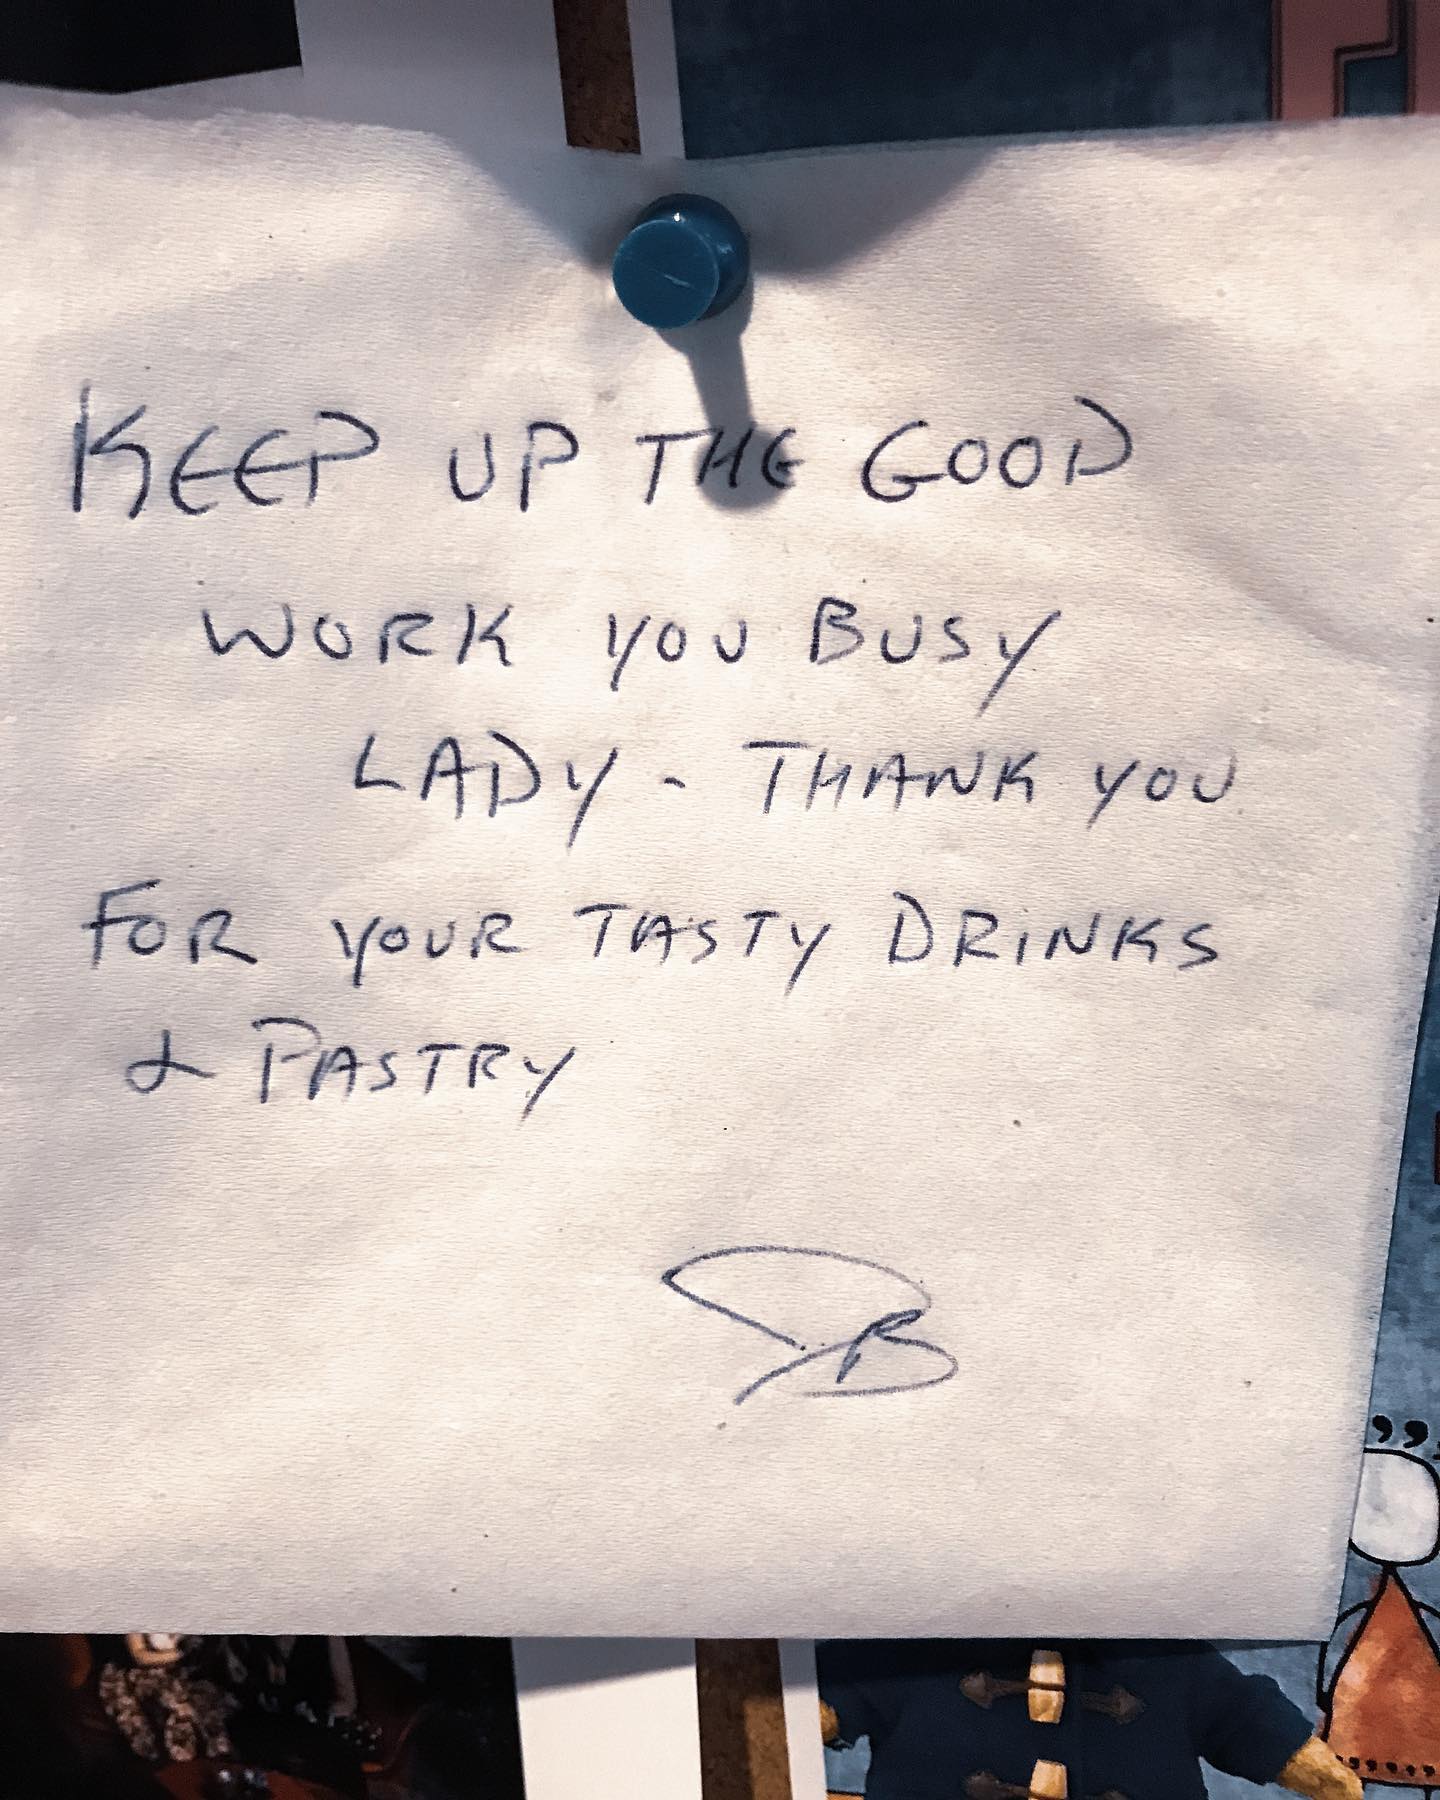 KEEP UP THE GOOD
WORK YOU BUSY
LADY - THANK YOU
FOR YOUR TASTY DRINKS
& PASTRY